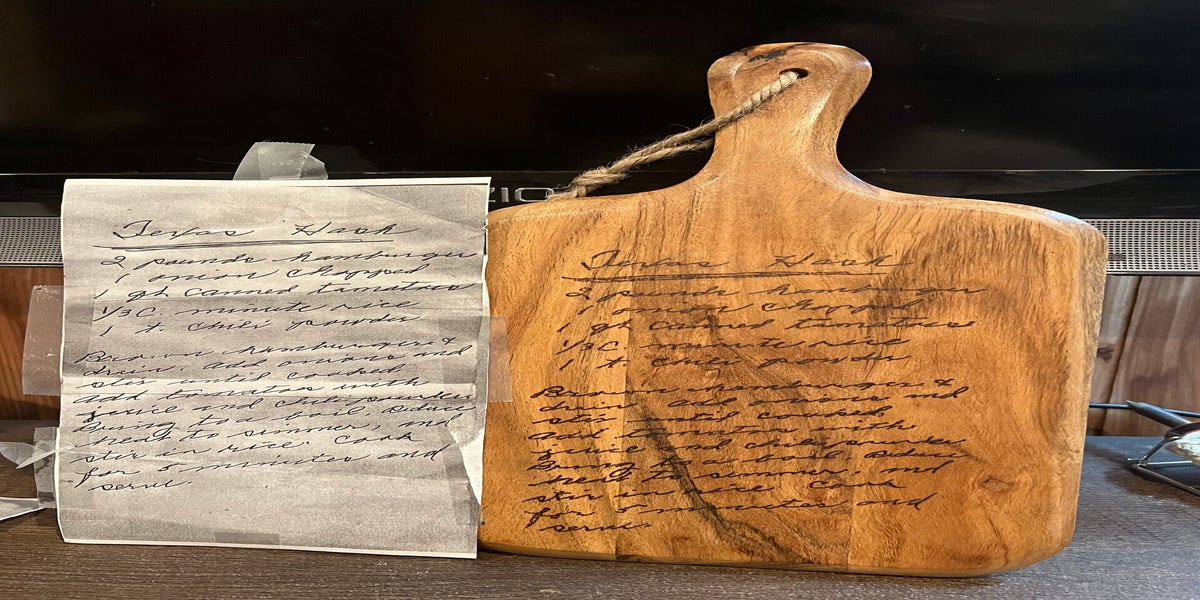 Texas Hash
2 pounds hamburger
1 onion chopped
1 qt canned tomatoes
1/3 C minute rice
1 t chili powder
Brown hamburger &
drain. add onions and
stir until cooked
add tomatoes with
juice and chili powder
Bring to a boil reduce
heat to simmer, and
stir in rice. Cook
for 5 minutes and
serve.
ZIO
Texas Hash
2 pounds hamburger
1 onion chopped
1 qt canned tomatoes
1/3 C minute rice
1 t chili powder
Brown hamburger &
drain. add onions and
stir until cooked
add tomatoes with
juice and chili powder
Bring to a boil reduce
heat to simmer, and
stir in rice. Cook
for 5 minutes and
serve.